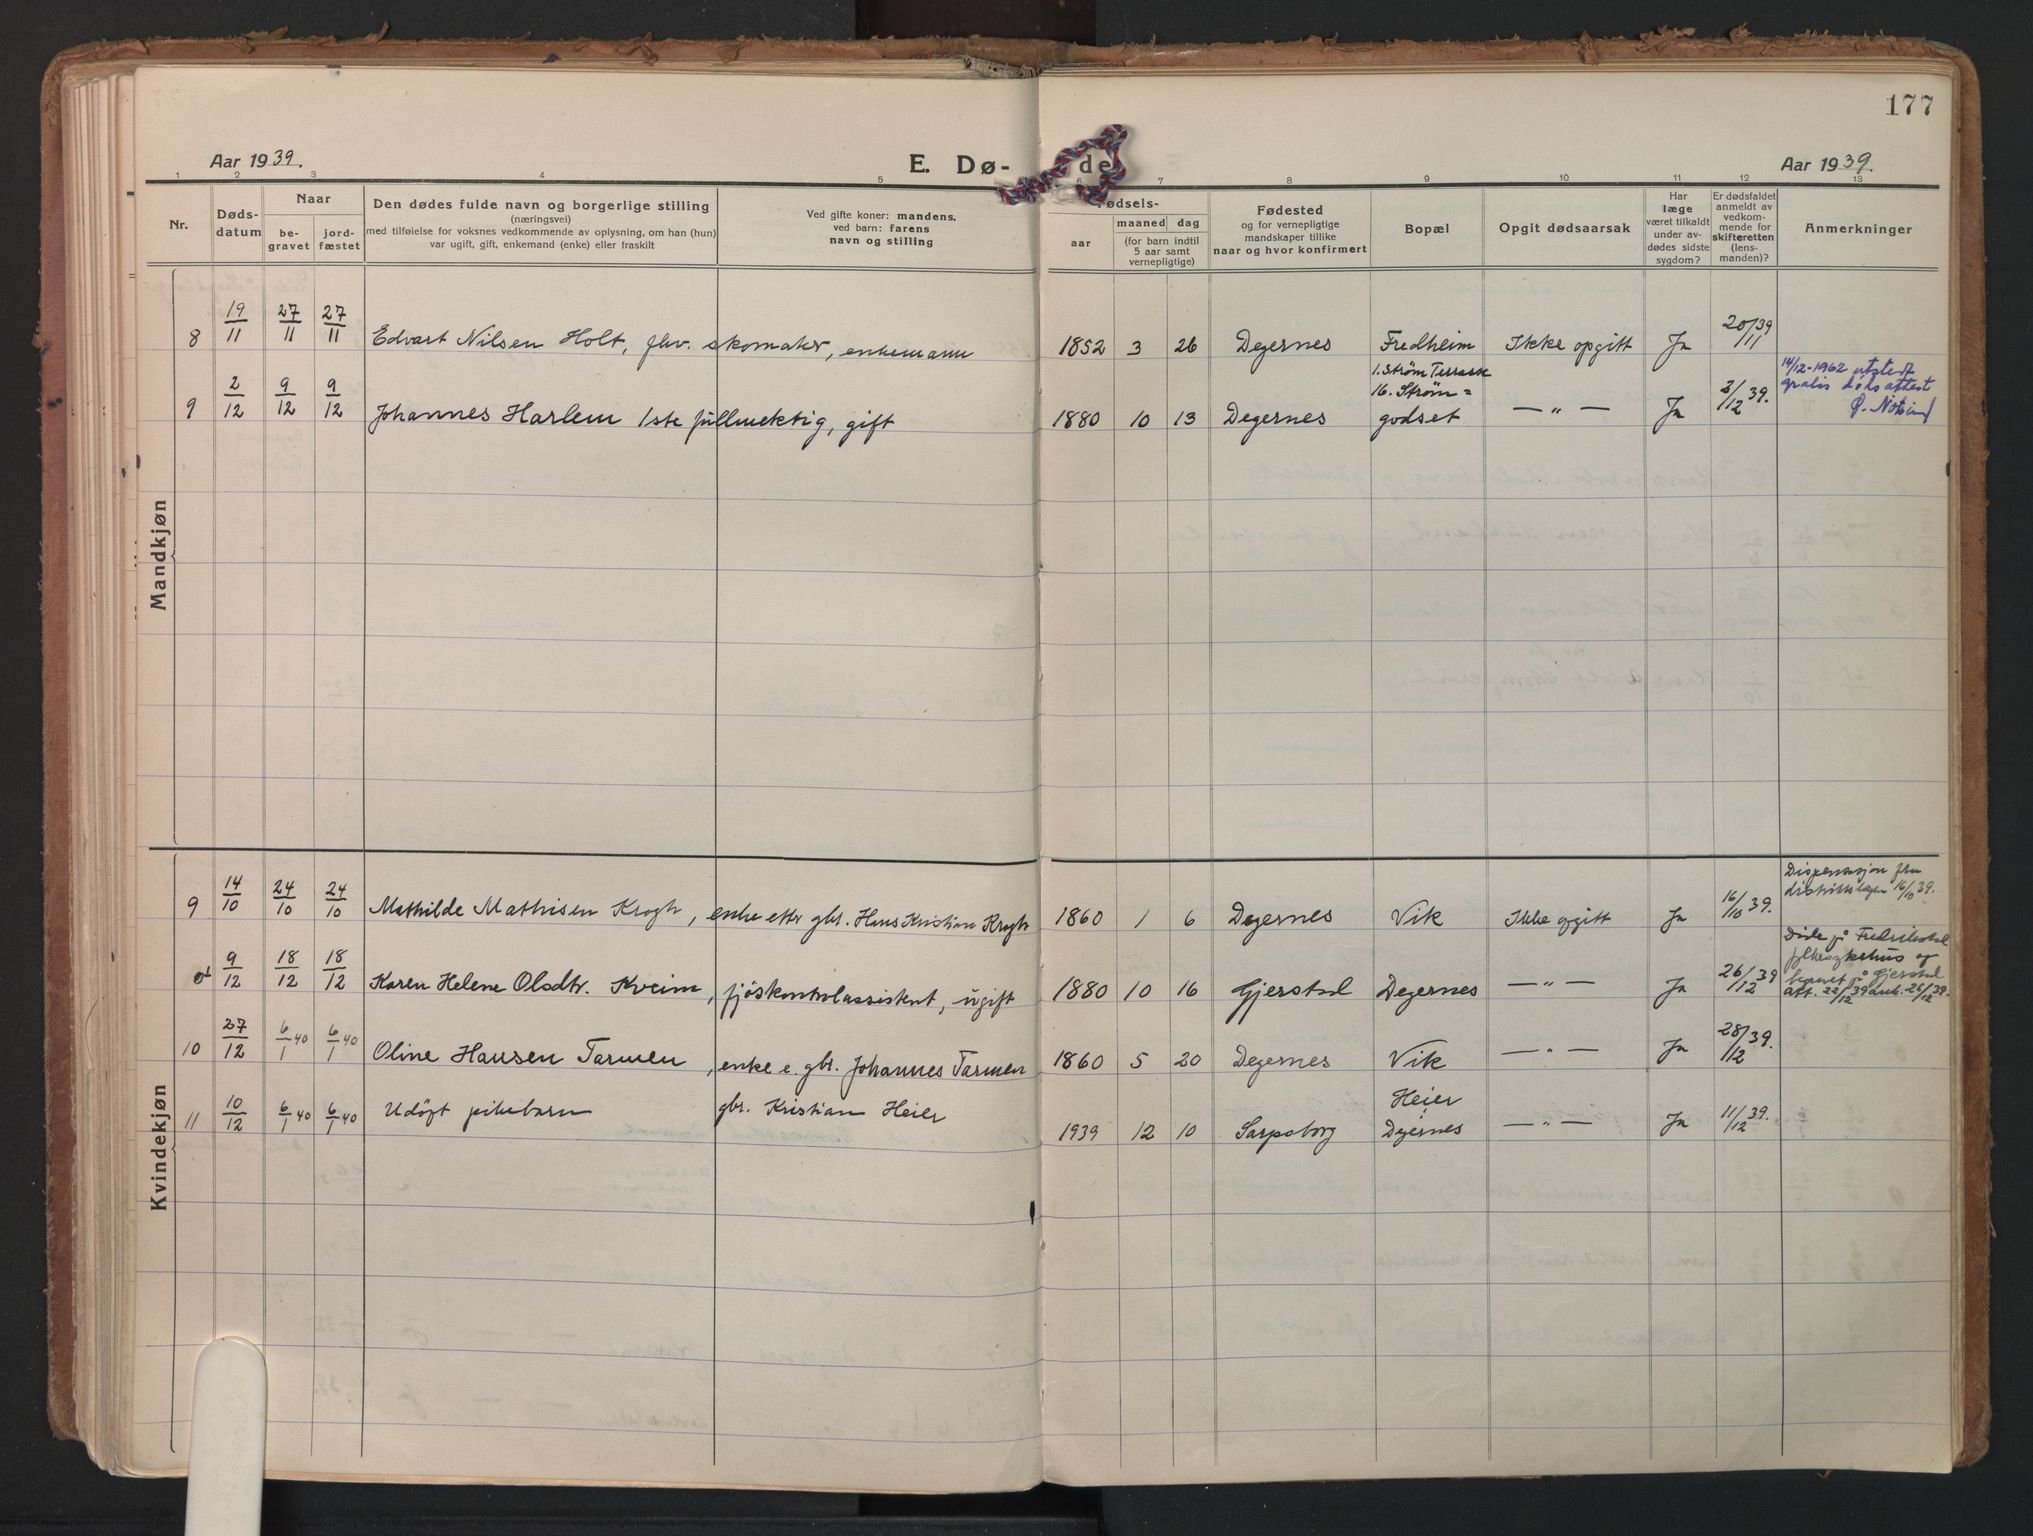 177
Aar 1939.
E. Dø-
de
Aar 1939.
1 2 3 4 5 6 7 8 9 10 11 12 13
Nr.
Døds-
datum
Naar
be-
gravet
jord-
fæstet
Den dødes fulde navn og borgerlige stilling
(næringsvei)
med tilføielse for voksnes vedkommende av oplysning, om han (hun)
var ugift, gift, enkemand (enke) eller fraskilt
Ved gifte koner: mandens,
ved barn: farens
navn og stilling
Fødsels-
aar
maaned
dag
(for barn indtil
5 aar samt
vernepligtige)
Fødested
og for vernepligtige
mandskaper tillike
naar og hvor konfirmert
Bopæl
Opgit dødsaarsak
Har
læge
været tilkaldt
under av-
dødes sidste
sygdom?
Er dødsfaldet
anmeldt av
vedkom-
mende for
skifteretten
(lens-
manden)?
Anmerkninger
Mandkjøn
8 19/11 27/11 27/11 Edvart Nilsen Holt, fhv. skomaker, enkemann 1852 3 26 Degernes Fredheim Ikke opgitt Ja 20/11 39
1. Strøm Terrasse
16. Strøm=
9 2/12 9/12 9/12 Johannes Harlem 1ste fullmektig, gift 1880 10 13 Degernes godset — „ — Ja 3/12 39.
14/12-1962 utstedt
gratis dødsattest
Kvindekjøn
9 14/10 24/10 24/10 Mathilde Mathisen Krogh, enke etter gbr. Hans Kristian Krogh 1860 1 6 Degernes Vik Ikke opgitt Ja 16/10 39.
Dispensasjon fra
distriktslegen 16/10 39.
9/12 18/12 18/12 Karen Helene Olsdtr. Kveim, fjøskontrolassistent, ugift 1880 10 16 Gjerstad Degernes — „ — Ja 26/12 39
Døde på Fredrikstad
fylkessykehus og
begravet på Gjerstad
att. 22/12 39 anh. 26/12 39.
10 27/12 6/1 40 6/1 40 Oline Hansen Tarmen, enke e. gbr. Johannes Tarmen 1860 5 20 Degernes Vik — „ — Ja 28/12 39.
11 10/12 6/1 40 6/1 40 Udøpt pikebarn gbr. Kristian Heier 1939 12 10 Sarpsborg Heier
Degernes — „ — Ja 11/12 39.